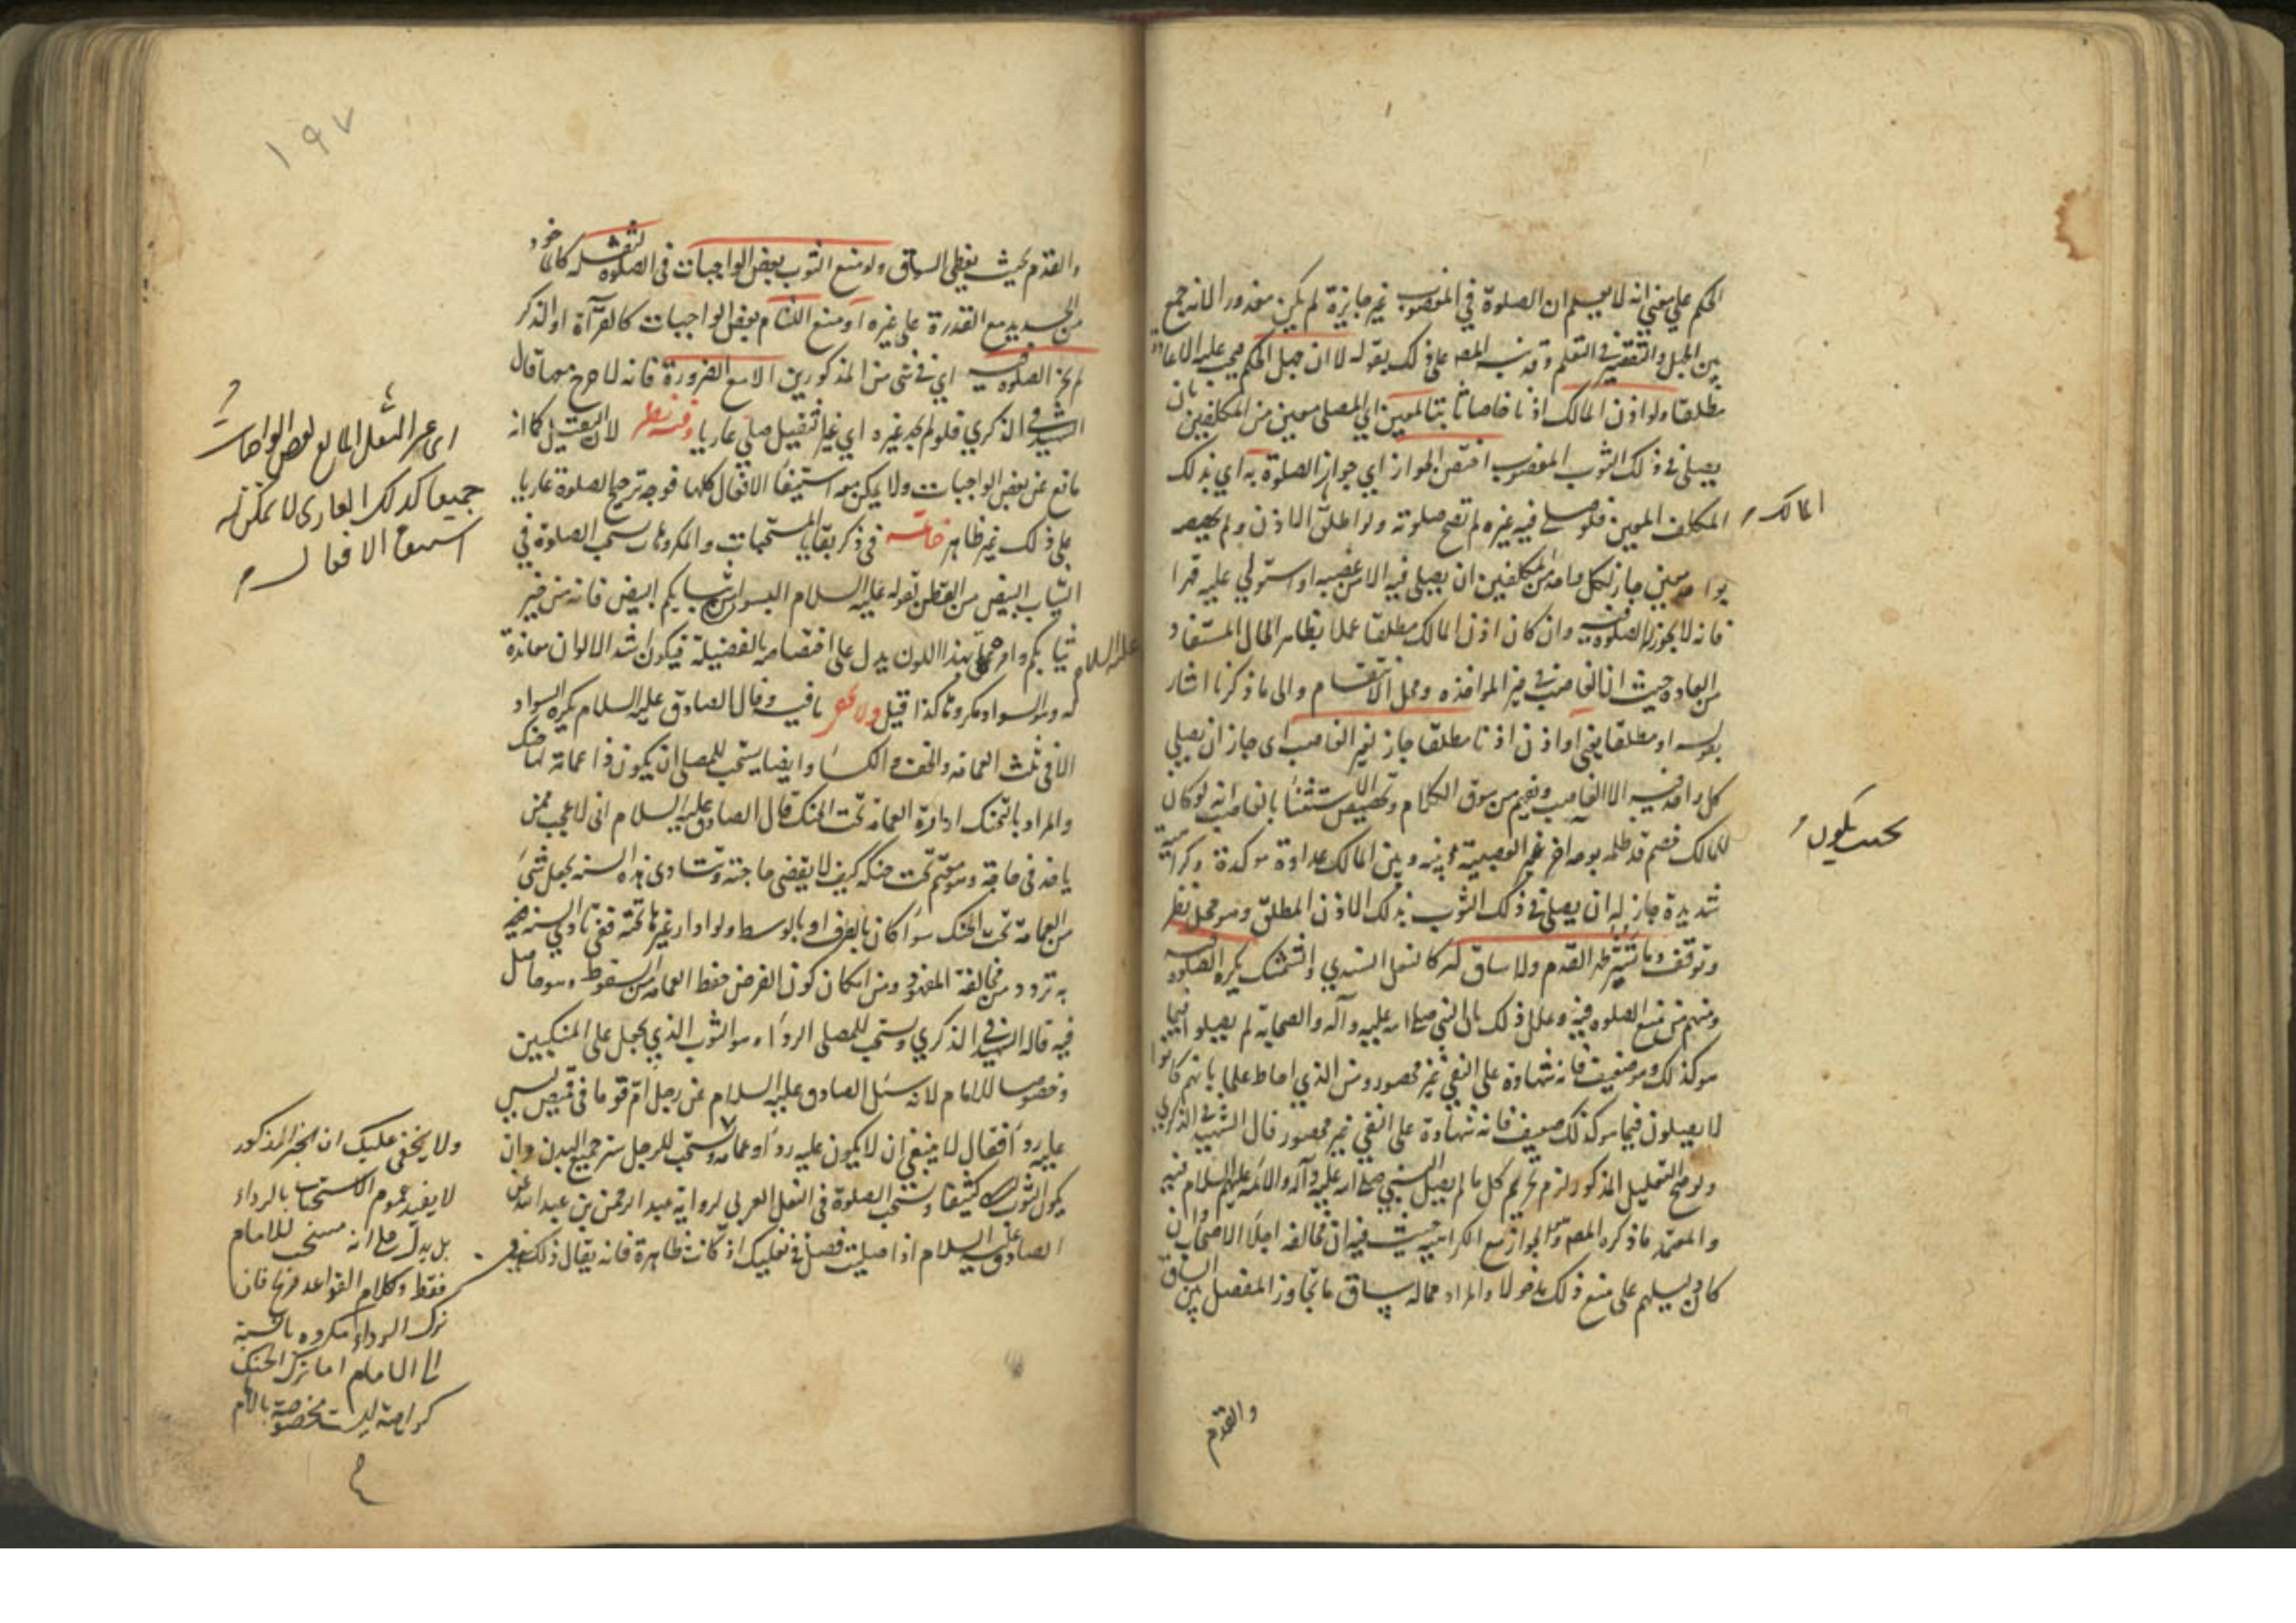 الحكم على معنى انه لا يعلم ان الصلوة في المغصوب غير جايزة لم يكن معذورا لانه جمع
بين الجهل والتقصير في التعلم وقد نبه المصه على ذلك بقوله لا ان جهل الحكم فيجب عليه الاعادة
مطلقا ولو اذن المالك اذنا خاصا ثابتا لمعين اي لمصلي معين من المكلفين بان
يصلي في ذلك الثوب المغصوب اختص الجواز اي جواز الصلوة به اي بذلك
المكلف المعين فلو صلى فيه غيره لم تصح صلوته ولو اطلق المالك الاذن ولم يخصه
بواحد معين جاز لكل واحد من المكلفين ان يصلي فيه الا من غصبه او استولى عليه قهرا
فانه لا يجوز له الصلوة فيه وان كان اذن المالك مطلقا عملا بظاهر الحال المستفاد
من العادة حيث ان الغاصب في حيز المواخذه ومحل الانتقام والى ما ذكرنا اشار
بقوله او مطلقا يعني او اذن اذنا مطلقا جاز لغير الغاصب اى جاز ان يصلي
كل واحد فيه الا الغاصب ويفهم من سوق الكلام وتخصيص الاستثناء بالغاصب انه لو كان
للمالك خصم قد ظلمه بوجه اخر غير الغصبية بحيث يكون بينه وبين المالك عداوة موكدة وكراهية
شديدة جاز له ان يصلي في ذلك الثوب بذلك الاذن المطلق وهو محل نظر
وتوقف وما يستر ظهر القدم ولا ساق له كالنعل السندي والشمشك يكره الصلوة فيه
ومنهم من منع الصلوه فيه وعلل ذلك بان النبي صلى الله عليه وآله والصحابة لم يصلوا فيما
هو كذلك وهو ضعيف فانه شهادة على النفي غير محصور ومن الذي احاط علما بانهم كانوا
لا يصلون فيما هو كذلك ضعيف فانه شهادة على النفي غير محصور قال الشهيد في الذكري
ولو صح التعليل المذكور لزم تحريم كل ما لم يصل النبي صلى الله عليه وآله والائمة عليهم السلام فيه
والمعتمد ما ذكره المصه وهو الجواز مع الكراهية حيث فيه ان مخالفه اجلاء الاصحاب وان
كان دليلهم على منع ذلك مدخولا والمراد مما له ساق ما تجاوز المفصل بين الساق
والقدم
والقدم بحيث يغطي الساق ولو منع الثوب بعض الواجبات في الصلوة لثقله كالخود
من الحديد مع القدرة على غيره او منع اللثام بعض الواجبات كالقرآة او الذكر
لم يجز الصلوة فيه اي في شيء من المذكورين الا مع الضرورة فانه لا حرج معها قال
الشهيد في الذكري فلو لم يجد غيره اي غير الثقيل صلى عاريا وفيه نظر لان الثقيل كما انه
مانع عن بعض الواجبات ولا يمكن معه استيفاء الافعال كلها فوجه ترجيح الصلوة عاريا
على ذلك غير ظاهر خاتمة في ذكر بقايا المستحبات والمكروهات يستحب الصلوة في
الثياب البيض من القطن لقوله عليه السلام البسوا من ثيابكم البيض فانه من خير
ثيابكم وامره عليه السلام بهذا اللون يدل على اختصاصه بالفضيلة فيكون اشد الالوان معاندة
له وهو السواد مكروها كذا قيل ولا يخفى ما فيه وقال الصادق عليه السلام يكره السواد
الا في ثلث العمامة والخف والكساء وايضا يستحب للمصلي ان يكون ذا عمامة لها حنك
والمراد بالتحنك ادارة العمامة تحت الحنك قال الصادق عليه السلام انى لاعجب ممن
ياخذ في حاجة وهو معتم تحت حنكه كيف لا يقضى حاجته وتتادى هذه السنه بجعل شيء
من العمامة تحت الحنك سواء كان بالطرف او بالوسط ولو ادار غيرها تحته ففي تادي السنة
به تردد من مخالفة المعهود ومن امكان كون الغرض حفظ العمامه من السقوط وهو حاصل
فيه قاله الشهيد في الذكري ويستحب للمصلى الرداء وهو الثوب الذي يجعل على المنكبين
وخصوصا للامام لانه سئل الصادق عليه السلام عن رجل ام قوما في قميص ليس
عليه رداء فقال لا ينبغي ان لا يكون عليه رداء او عمامة ويستحب للرجل ستر جميع البدن وان
يكون الثوب كثيفا ويستحب الصلوة في النعل العربي لرواية عبد الرحمن بن عبد الله عن
الصادق عليه السلام اذا صليت فصل في نعليك اذ كانت طاهرة فانه يقال ذلك
١٩٧
جميعا كذلك العارى لا يمكن له
استيفاء الافعال
ولا يخفى عليك ان الخبر المذكور
لا يفيد عموم الاستحباب بالرداء
بل يدل على انه مستحب للامام
فقط وكلام القواعد صريح فان
ترك الرداء مكروه بالنسبة
الى الامام اما ترك الحنك
كراهية ليست مخصوصة بالامام